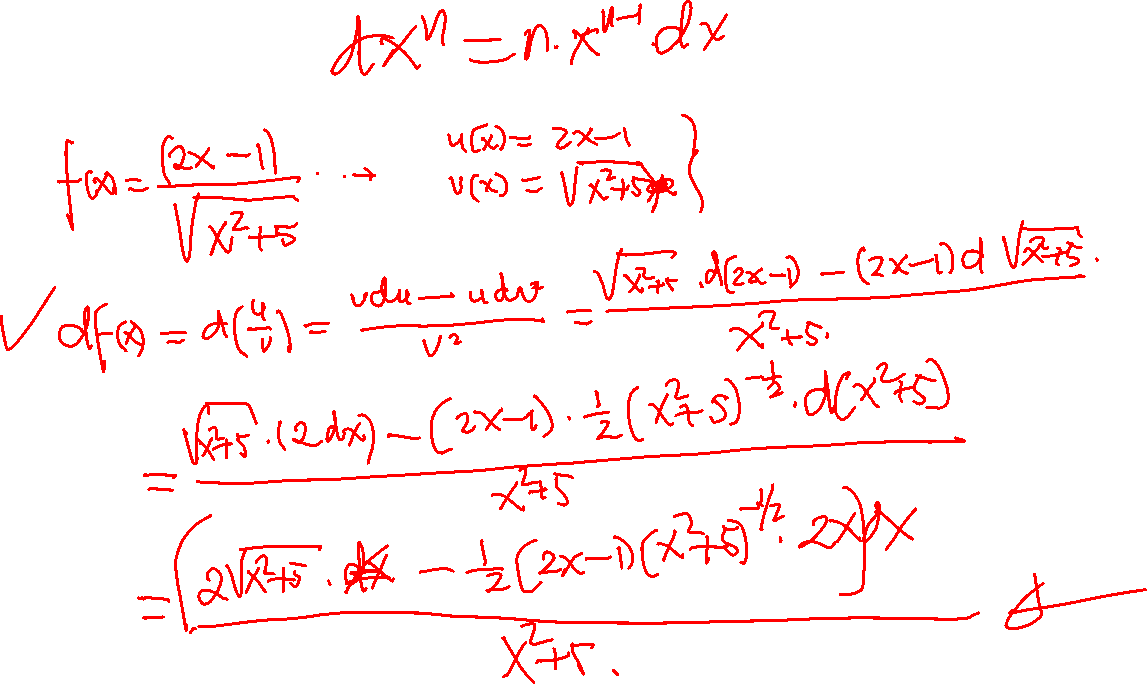 dxⁿ = n · xⁿ⁻¹ · dx
f(x) = (2x − 1) / √(x² + 5) · · → u(x) = 2x − 1
v(x) = √(x² + 5) }
✓ df(x) = d(u/v) = (vdu − udv) / v² = (√(x²+5) · d(2x−1) − (2x−1) d √(x²+5)) / (x² + 5).
= (√(x²+5) · (2dx) − (2x−1) · ½ (x²+5)^(−½) · d(x²+5)) / (x² + 5)
= (2√(x²+5) · − ½ (2x−1)(x²+5)^(−1/2) · 2x) dx / (x² + 5).